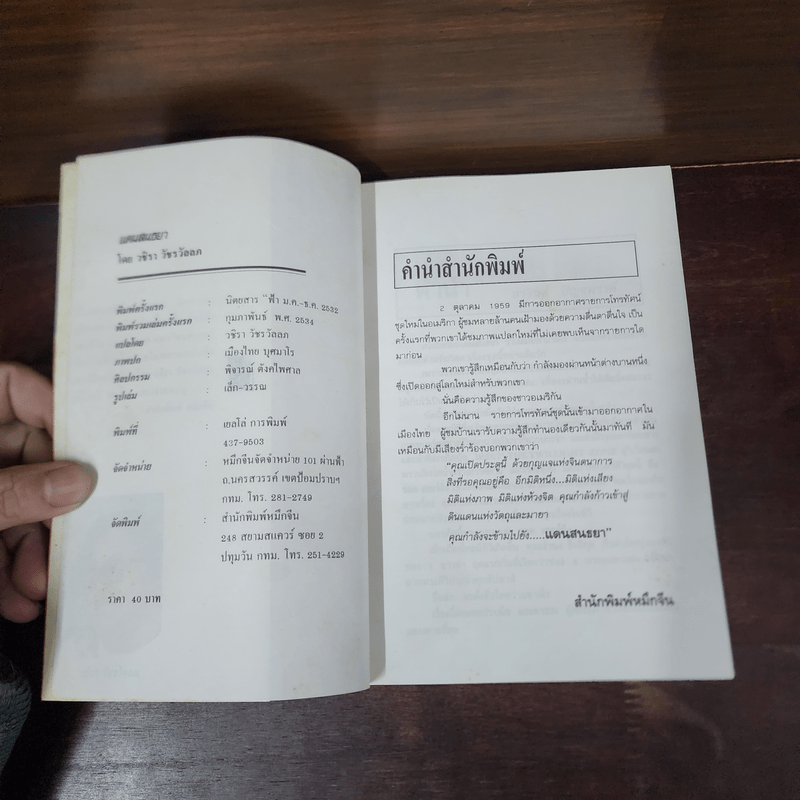 แดนสนธยา
โดย วชิรา วัชรวัลลภ
พิมพ์ครั้งแรก : นิตยสาร "ฟ้า ม.ค.-ธ.ค. 2532
พิมพ์รวมเล่มครั้งแรก : กุมภาพันธ์ พ.ศ. 2534
แปลโดย : วชิรา วัชรวัลลภ
ภาพปก : เมืองไทย บุศมาโร
ศิลปกรรม : พิจารณ์ ตังคไพศาล
รูปเล่ม : เล็ก-วรรณ
พิมพ์ที่ : เยลโล่ การพิมพ์
437-9503
จัดจำหน่าย : หมึกจีนจัดจำหน่าย 101 ผ่านฟ้า
ถ.นครสวรรค์ เขตป้อมปราบฯ
กทม. โทร. 281-2749
จัดพิมพ์ : สำนักพิมพ์หมึกจีน
248 สยามสแควร์ ซอย 2
ปทุมวัน กทม. โทร. 251-4229
ราคา 40 บาท
คำนำสำนักพิมพ์
2 ตุลาคม 1959 มีการออกอากาศรายการโทรทัศน์
ชุดใหม่ในอเมริกา ผู้ชมหลายล้านคนเฝ้ามองด้วยความตื่นตาตื่นใจ เป็น
ครั้งแรกที่พวกเขาได้ชมภาพแปลกใหม่ที่ไม่เคยพบเห็นจากรายการใด
มาก่อน
พวกเขารู้สึกเหมือนกับว่า กำลังมองผ่านหน้าต่างบานหนึ่ง
ซึ่งเปิดออกสู่โลกใหม่สำหรับพวกเขา
นั่นคือความรู้สึกของชาวอเมริกัน
อีกไม่นาน รายการโทรทัศน์ชุดนั้นเข้ามาออกอากาศใน
เมืองไทย ผู้ชมบ้านเรารับความรู้สึกทำนองเดียวกันนั้นมาทันที มัน
เหมือนกับมีเสียงร่ำร้องบอกพวกเขาว่า
"คุณเปิดประตูนี้ ด้วยกุญแจแห่งจินตนาการ
สิ่งที่รอคุณอยู่คือ อีกมิติหนึ่ง...มิติแห่งเสียง
มิติแห่งภาพ มิติแห่งห้วงจิต คุณกำลังก้าวเข้าสู่
ดินแดนแห่งวัตถุและมายา
คุณกำลังจะข้ามไปยัง.....แดนสนธยา"
สำนักพิมพ์หมึกจีน